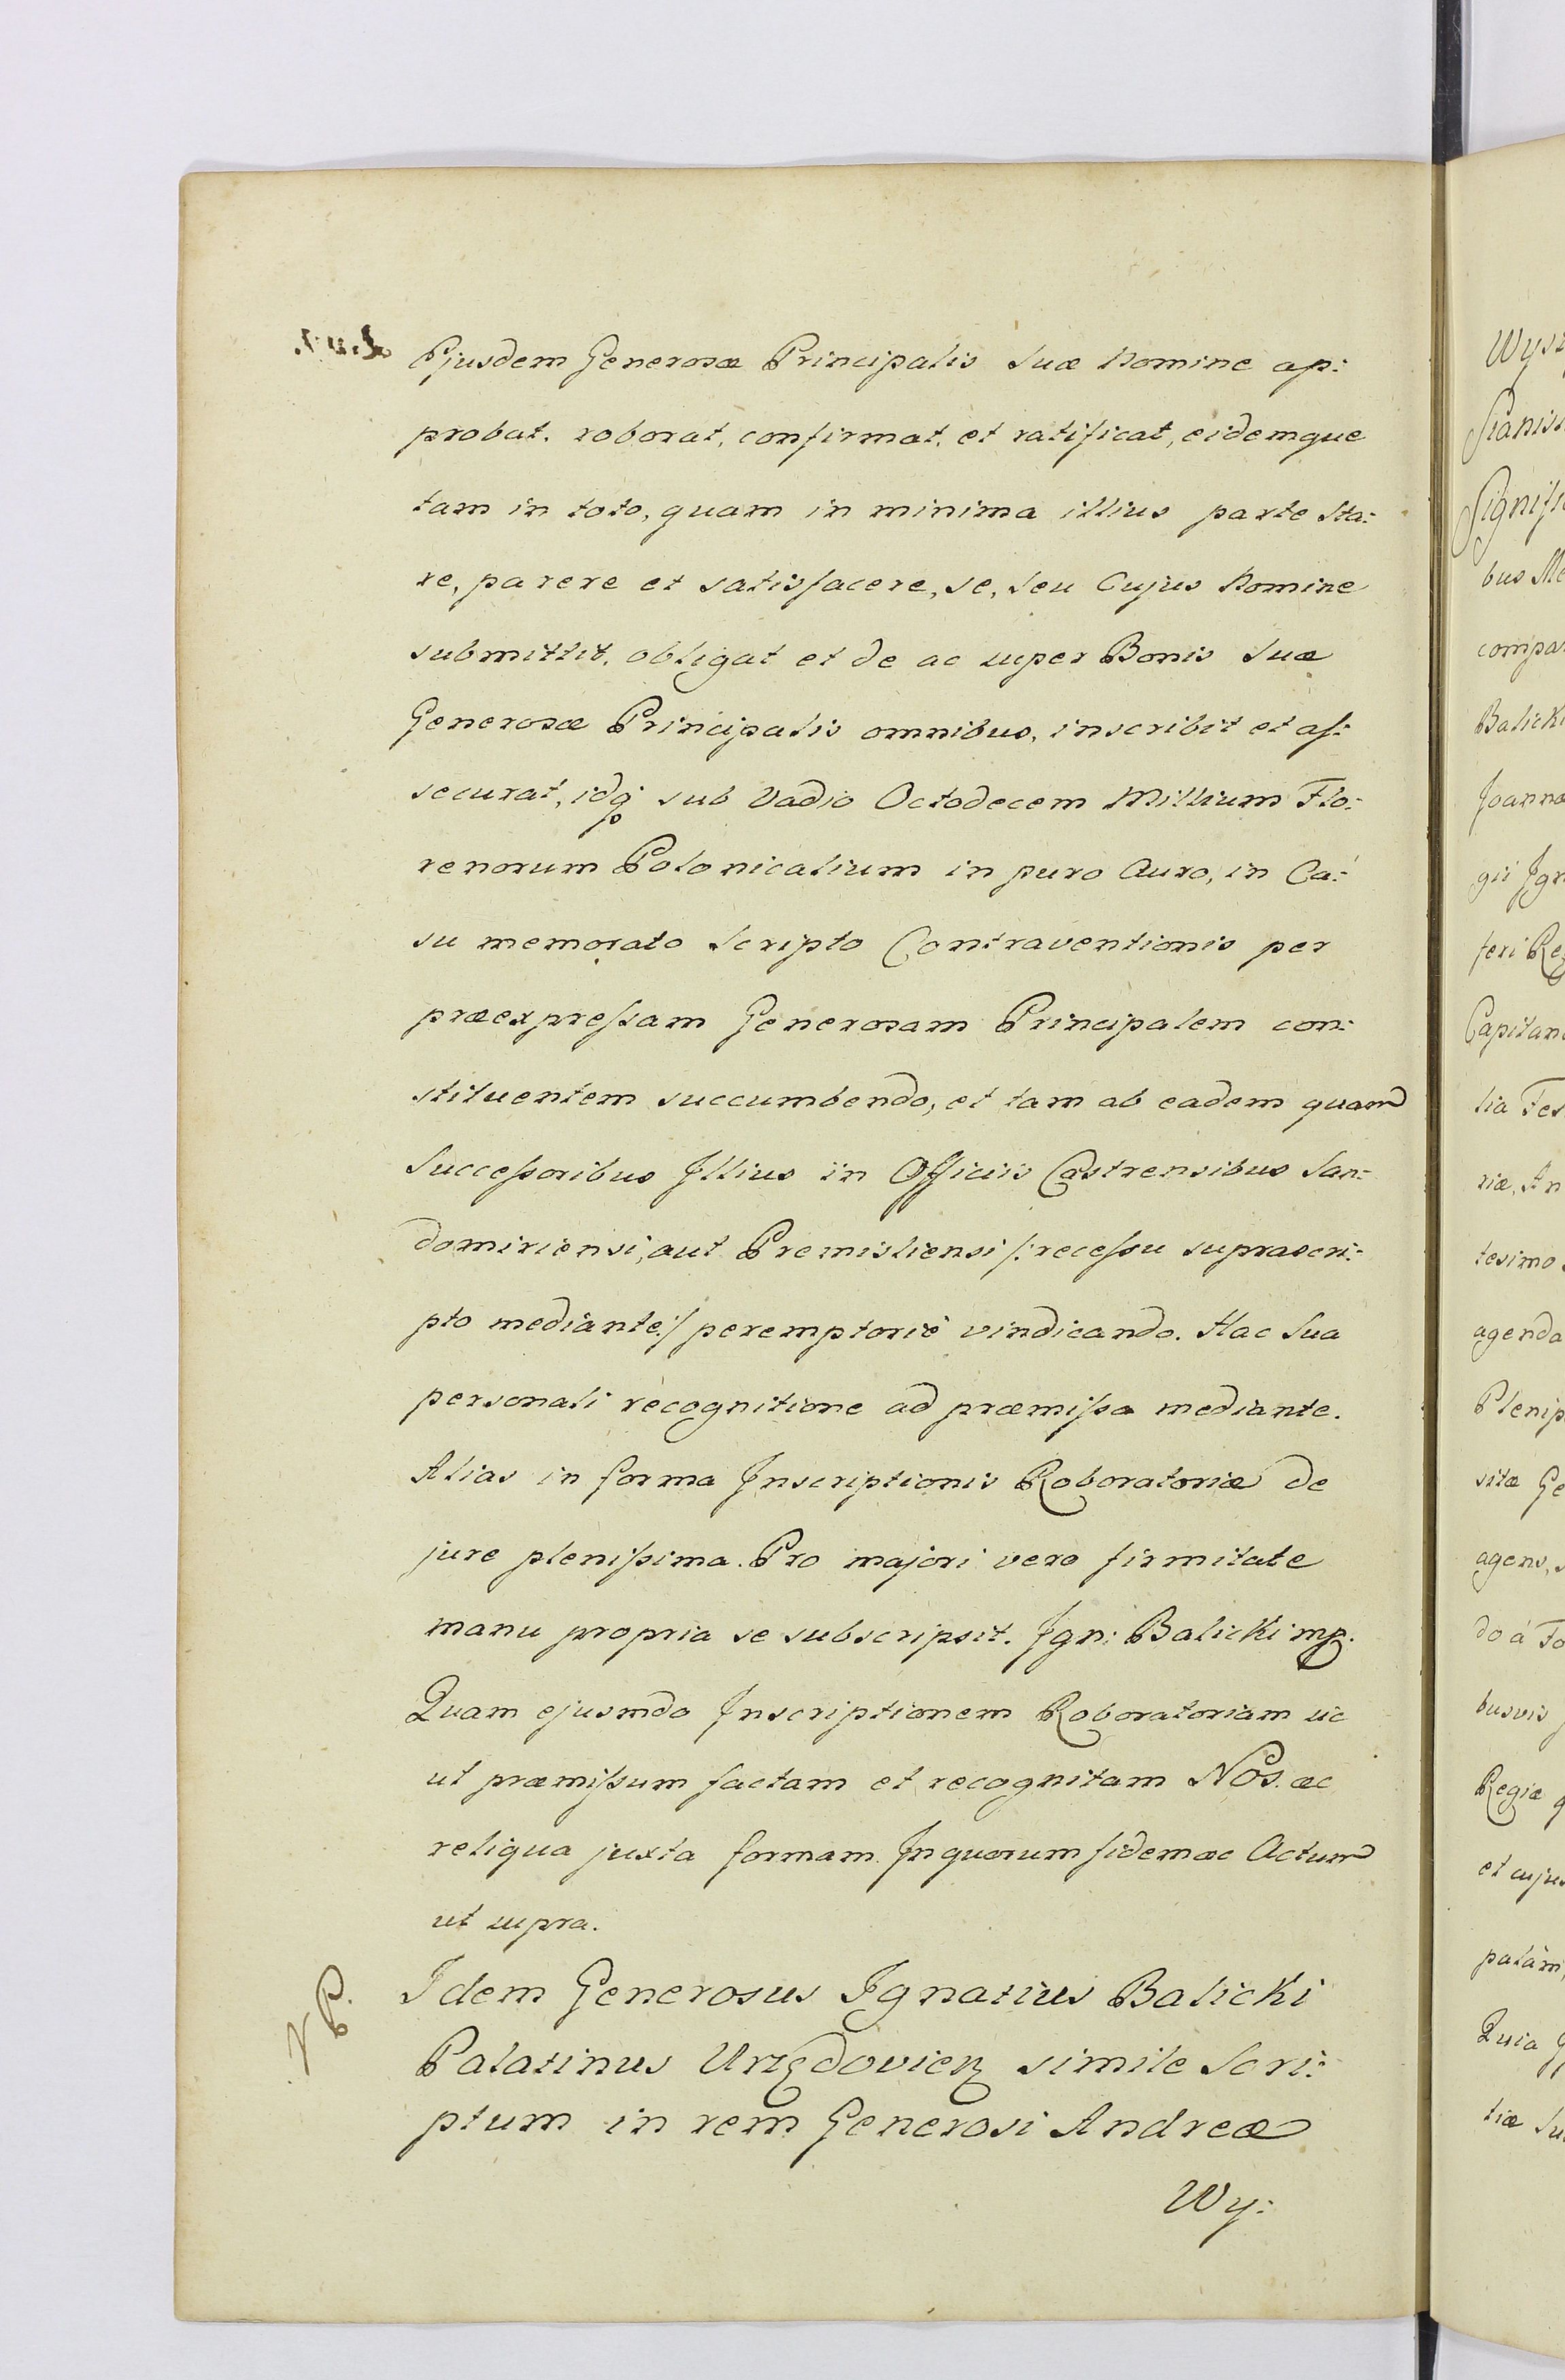 Ejusdem Generosæ Principalis Suæ Nomine ap:
probat, roborat, confirmat, et ratificat, eidemque
tam in toto, quam in minima illius parte Sta:
re, parere et satisfacere, se, Seu Cujus Nomine
submittit, obligat et de ac super Bonis Suæ
Generosæ Principalis omnibus, inscribit et aſ:
securat, idq sub Vadio Octodecem Millium Flo:
renorum Polonicalium in puro Auro, in Ca:
su memorato Scripto Contraventionis per
præexpreſsam Generosam Principalem con:
stituentem succumbendo, et tam ab eadem quam
Succeſsoribus Illius in Officiis Castrensibus San:
domiriensi, aut Premisliensi /: receſsu suprascri:
pto mediante :/ peremptoriè vindicando. Hac Sua
personali recognitione ad præmiſsa mediante.
Alias in forma Inscriptionis Roboratoriæ de
jure pleniſsima. Pro majori vero firmitate
manu propria se subscripsit. Ign: Balicki mp.
Quam ejusmdo Inscriptionem Roboratoriam sic
ut præmiſsum factam et recognitam Nos. ac
reliqua juxta formam. In quorum fidem ac Actum
ut supra.
NP. Idem Generosus Ignatius Balicki
Palatinus Urzędovien simile Scri:
ptum in rem Generosi Andreæ
Wy:
Wys
Stanis
Signifi
bus Me
compa
Balicki
Joannæ
gii Ign
feri Reg
Capitan
lia Fes
riæ, An
tesimo
agenda
Plenip
sitæ Ge
agens,
do à Fo
busvis
Regiæ q
et cujus
palàm,
Quia
tiæ Su